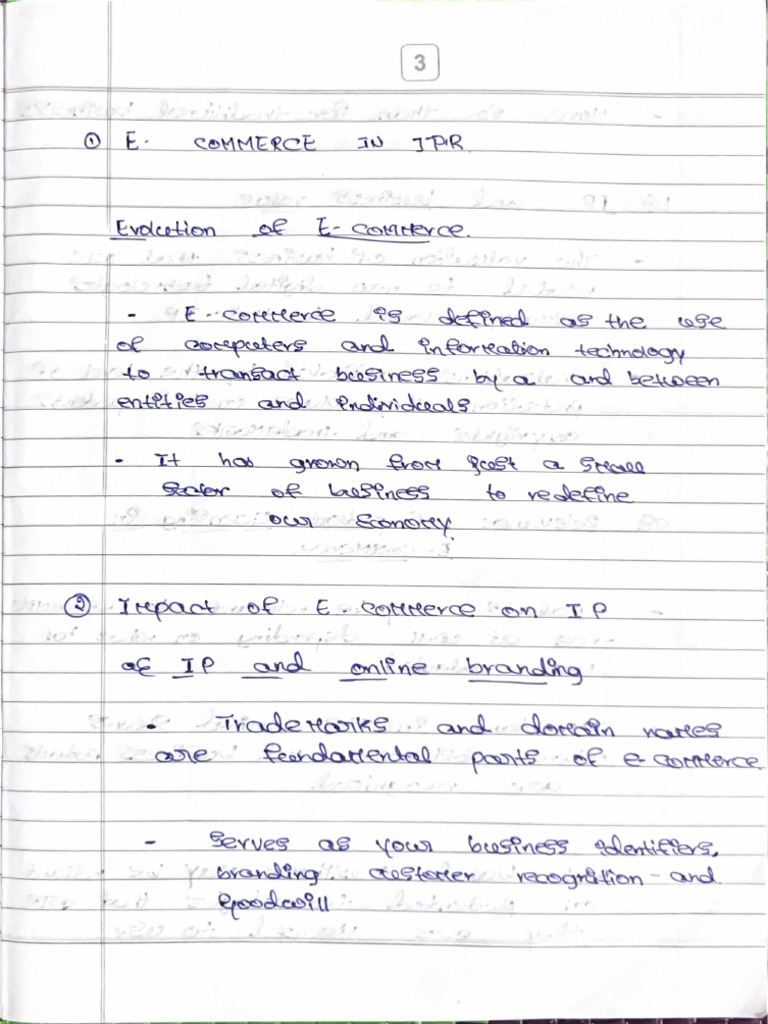 3
① E- COMMERCE IN IPR.
Evolution of E-commerce.
- E-commerce is defined as the use
of computers and information technology
to transact business by a and between
entities and individuals.
- It has grown from just a small
of business to redefine
our Economy.
② Impact of E-commerce on IP
of IP and online branding
- Trademarks and domain names
are fundamental parts of e-commerce
- Serves as your business identifiers,
branding customer recognition and
Goodwill